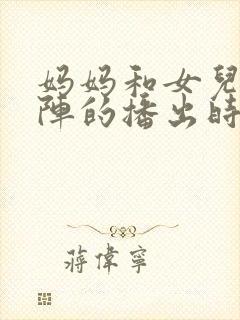 妈妈和女兒
陣的播出時
蔣偉寧